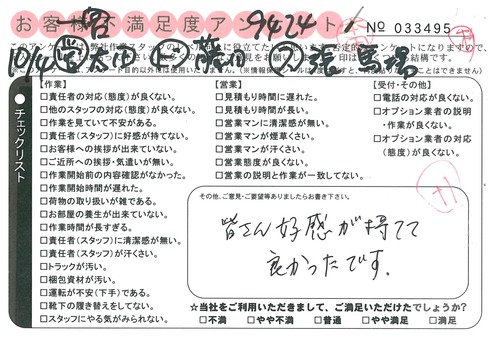 お客様不満足度アンケート
9424
No 033495
10/4
【作業】
□責任者の対応(態度)が良くない。
□他のスタッフの対応(態度)が良くない。
□作業を見ていて不安がある。
□責任者(スタッフ)に好感が持てない。
□お客様への挨拶が出来ていない。
□ご近所への挨拶・気遣いが無い。
□作業開始前の内容確認がなかった。
□作業開始時間が遅れた。
□荷物の取り扱いが雑である。
□お部屋の養生が出来ていない。
□作業時間が長すぎる。
□責任者(スタッフ)に清潔感が無い。
□責任者(スタッフ)が汗くさい。
□トラックが汚い。
□梱包資材が汚い。
□運転が不安(下手)である。
□靴下の履き替えをしてない。
□スタッフにやる気がみられない。
【営業】
□見積もり時間に遅れた。
□見積もり時間が長い。
□営業マンに清潔感が無い。
□営業マンが煙草くさい。
□営業マンが汗くさい。
□営業態度が良くない。
□営業の説明と作業が一致してない。
【受付・その他】
□電話の対応が良くない。
□オプション業者の説明
・作業が良くない。
□オプション業者の対応
(態度)が良くない。
●チェックリスト
+1
その他、ご意見・ご要望等ありましたらお書き下さい。
皆さん好感が得てて
良かったです。
☆当社をご利用いただきまして、ご満足いただけたでしょうか?
□不満 □やや不満 □普通 □やや満足 □満足